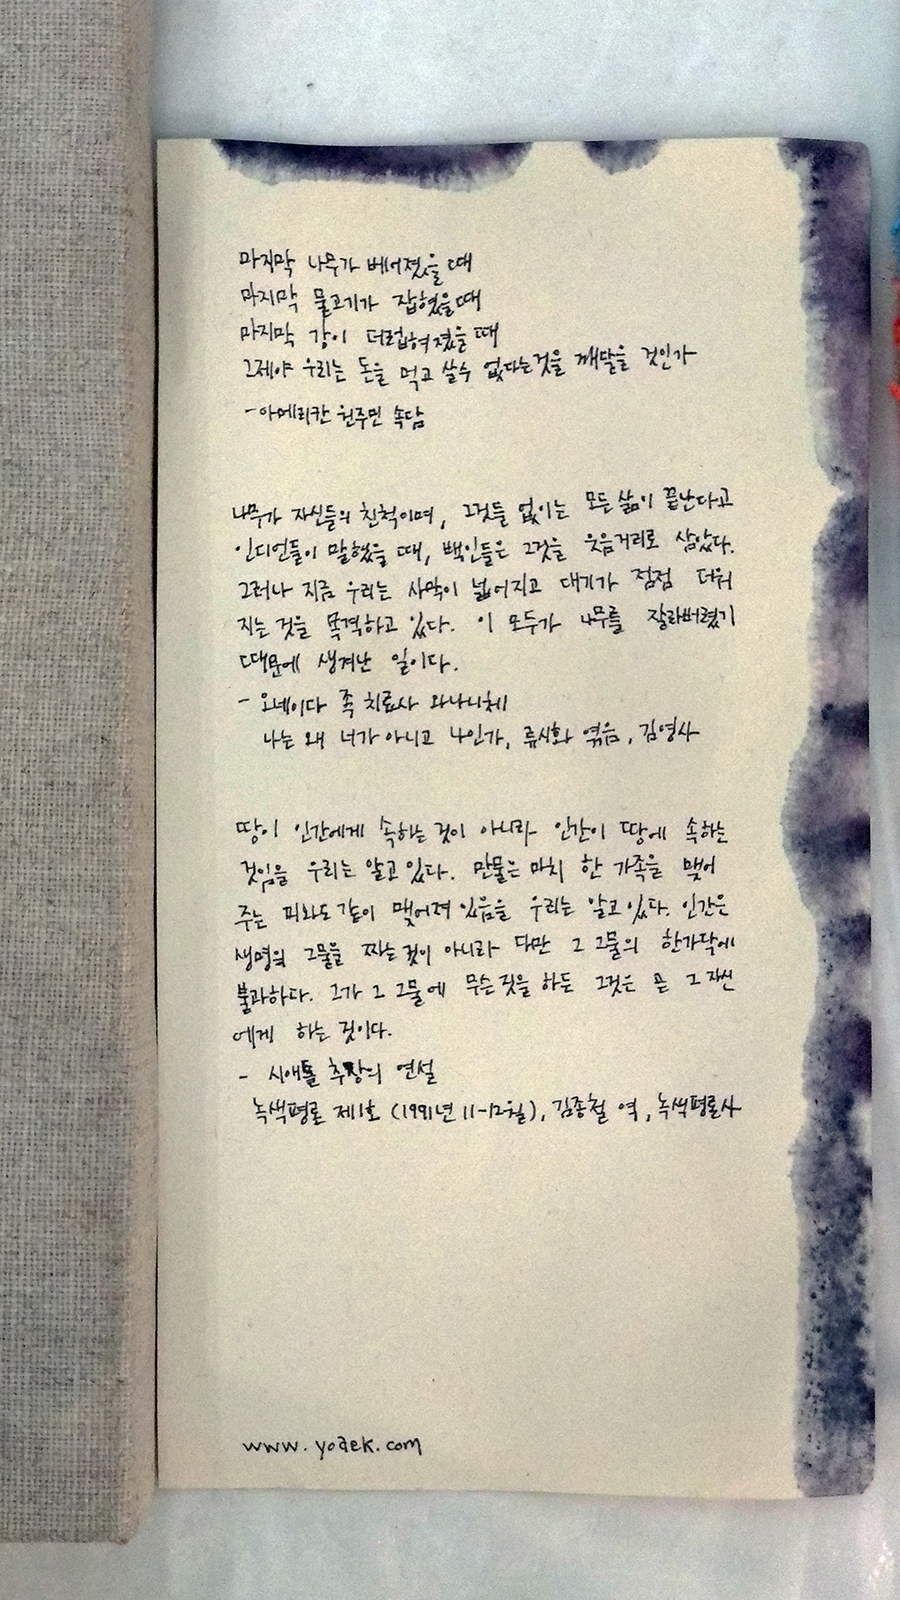 마지막 나무가 베어졌을 때
마지막 물고기가 잡혔을 때
마지막 강이 더럽혀졌을 때
그제야 우리는 돈을 먹고 살수 없다는것을 깨달을 것인가
- 아메리칸 원주민 속담
나무가 자신들의 친척이며, 그것들 없이는 모든 삶이 끝난다고
인디언들이 말했을 때, 백인들은 그것을 웃음거리로 삼았다.
그러나 지금 우리는 사막이 넓어지고 대기가 점점 더워
지는 것을 목격하고 있다. 이 모두가 나무를 잘라버렸기
때문에 생겨난 일이다.
- 오네이다 족 치료사 와나니체
나는 왜 너가 아니고 나인가, 류시화 엮음, 김영사
땅이 인간에게 속하는 것이 아니라 인간이 땅에 속하는
것임을 우리는 알고 있다. 만물은 마치 한 가족을 맺어
주는 피와도 같이 맺어져 있음을 우리는 알고 있다. 인간은
생명의 그물을 짜는 것이 아니라 다만 그 그물의 한가닥에
불과하다. 그가 그 그물에 무슨 짓을 하든 그것은 곧 그 자신
에게 하는 짓이다.
- 시애틀 추장의 연설
녹색평론 제1호 (1991년 11-12월), 김종철 역, 녹색평론사
www.yoaek.com